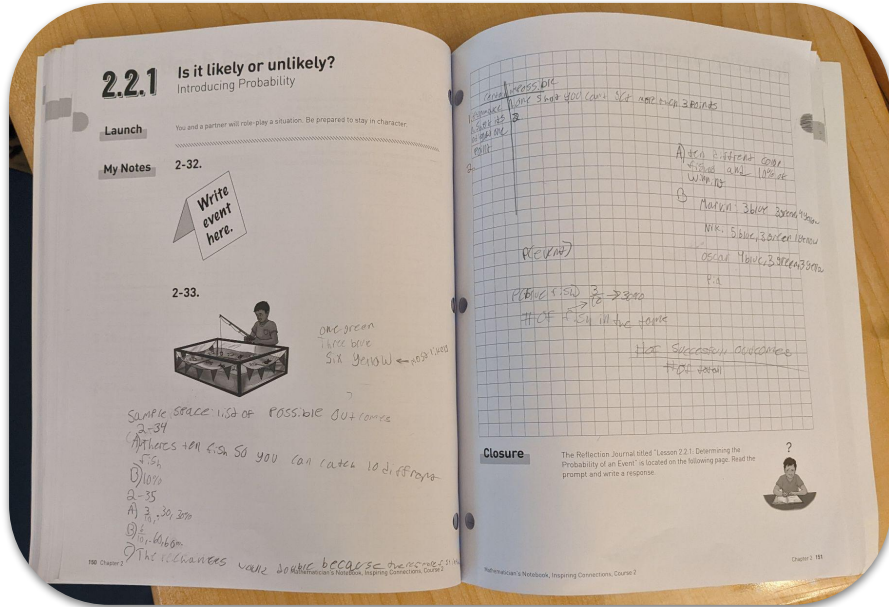 2.2.1
Is it likely or unlikely?
Introducing Probability
Launch
You and a partner will role-play a situation. Be prepared to stay in character.
My Notes
2-32.
Write
event
here.
2-33.
one green
Three blue
Six yellow ←
Sample space: list of Possible Outcomes
2-34
A) Theres ten fish so you can catch 10 different
fish
B) 10%
2-35
A) 3/10, .30, 30%
B) 6/10, .60, 60%
C) The chances double because
150 Chapter 2
Mathematician's Notebook, Inspiring Connections, Course 2
Possible
shot you could get more than 3 points
point
2.
A) ten different
fish and 10% of
B
Marvin: 3 blue 3 green, 4 yellow
Nik: 5 blue, 3 green 1 yellow
oscar 4 blue, 3 green, 3
P(event)
P(blue fish) 3/10 → 30%
# OF fish in the
# OF Successful outcomes
# OF total
Closure
The Reflection Journal titled "Lesson 2.2.1: Determining the
Probability of an Event" is located on the following page. Read the
prompt and write a response.
?
Mathematician's Notebook, Inspiring Connections, Course 2
Chapter 2 151